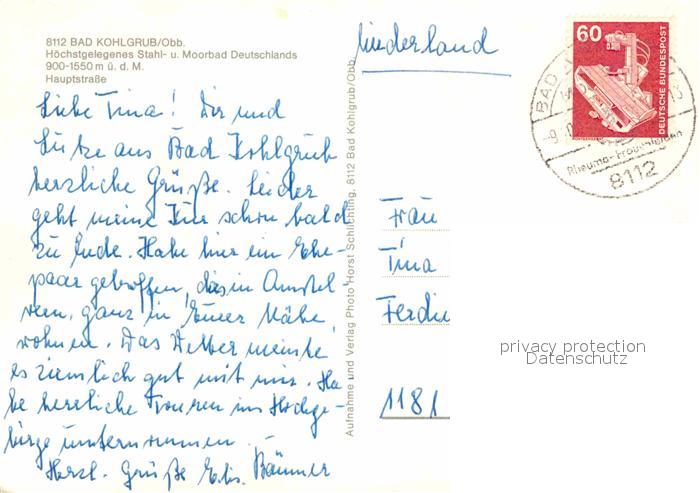 8112 BAD KOHLGRUB/Obb.
Höchstgelegenes Stahl- u. Moorbad Deutschlands
900-1550 m ü. d. M.
Hauptstraße
Liebe Tina! Dir und
Lütze aus Bad Kohlgrub
herzliche Grüße. Leider
geht meine Kur schon bald
zu Ende. Habe hier ein Ehe-
paar getroffen, das in Amstel
veen, ganz in Eurer Nähe
wohnen. Das Wetter meinte
es ziemlich gut mit mir. Ha
be herzliche Touren ins Hochge-
birge unternommen.
Herzl. Grüße Elis. Bäumer
Aufnahme und Verlag Photo Horst Schlichting, 8112 Bad Kohlgrub/Obb.
Niederland
60
DEUTSCHE BUNDESPOST
BAD
8112
Frau
Tina
Ferdin
1181
privacy protection
Datenschutz